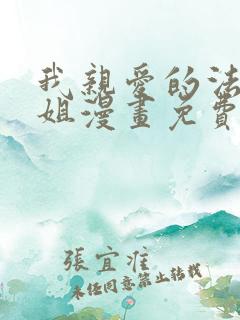 我親愛的法
姐漫畫免費
張宜准
未经同意禁止转载